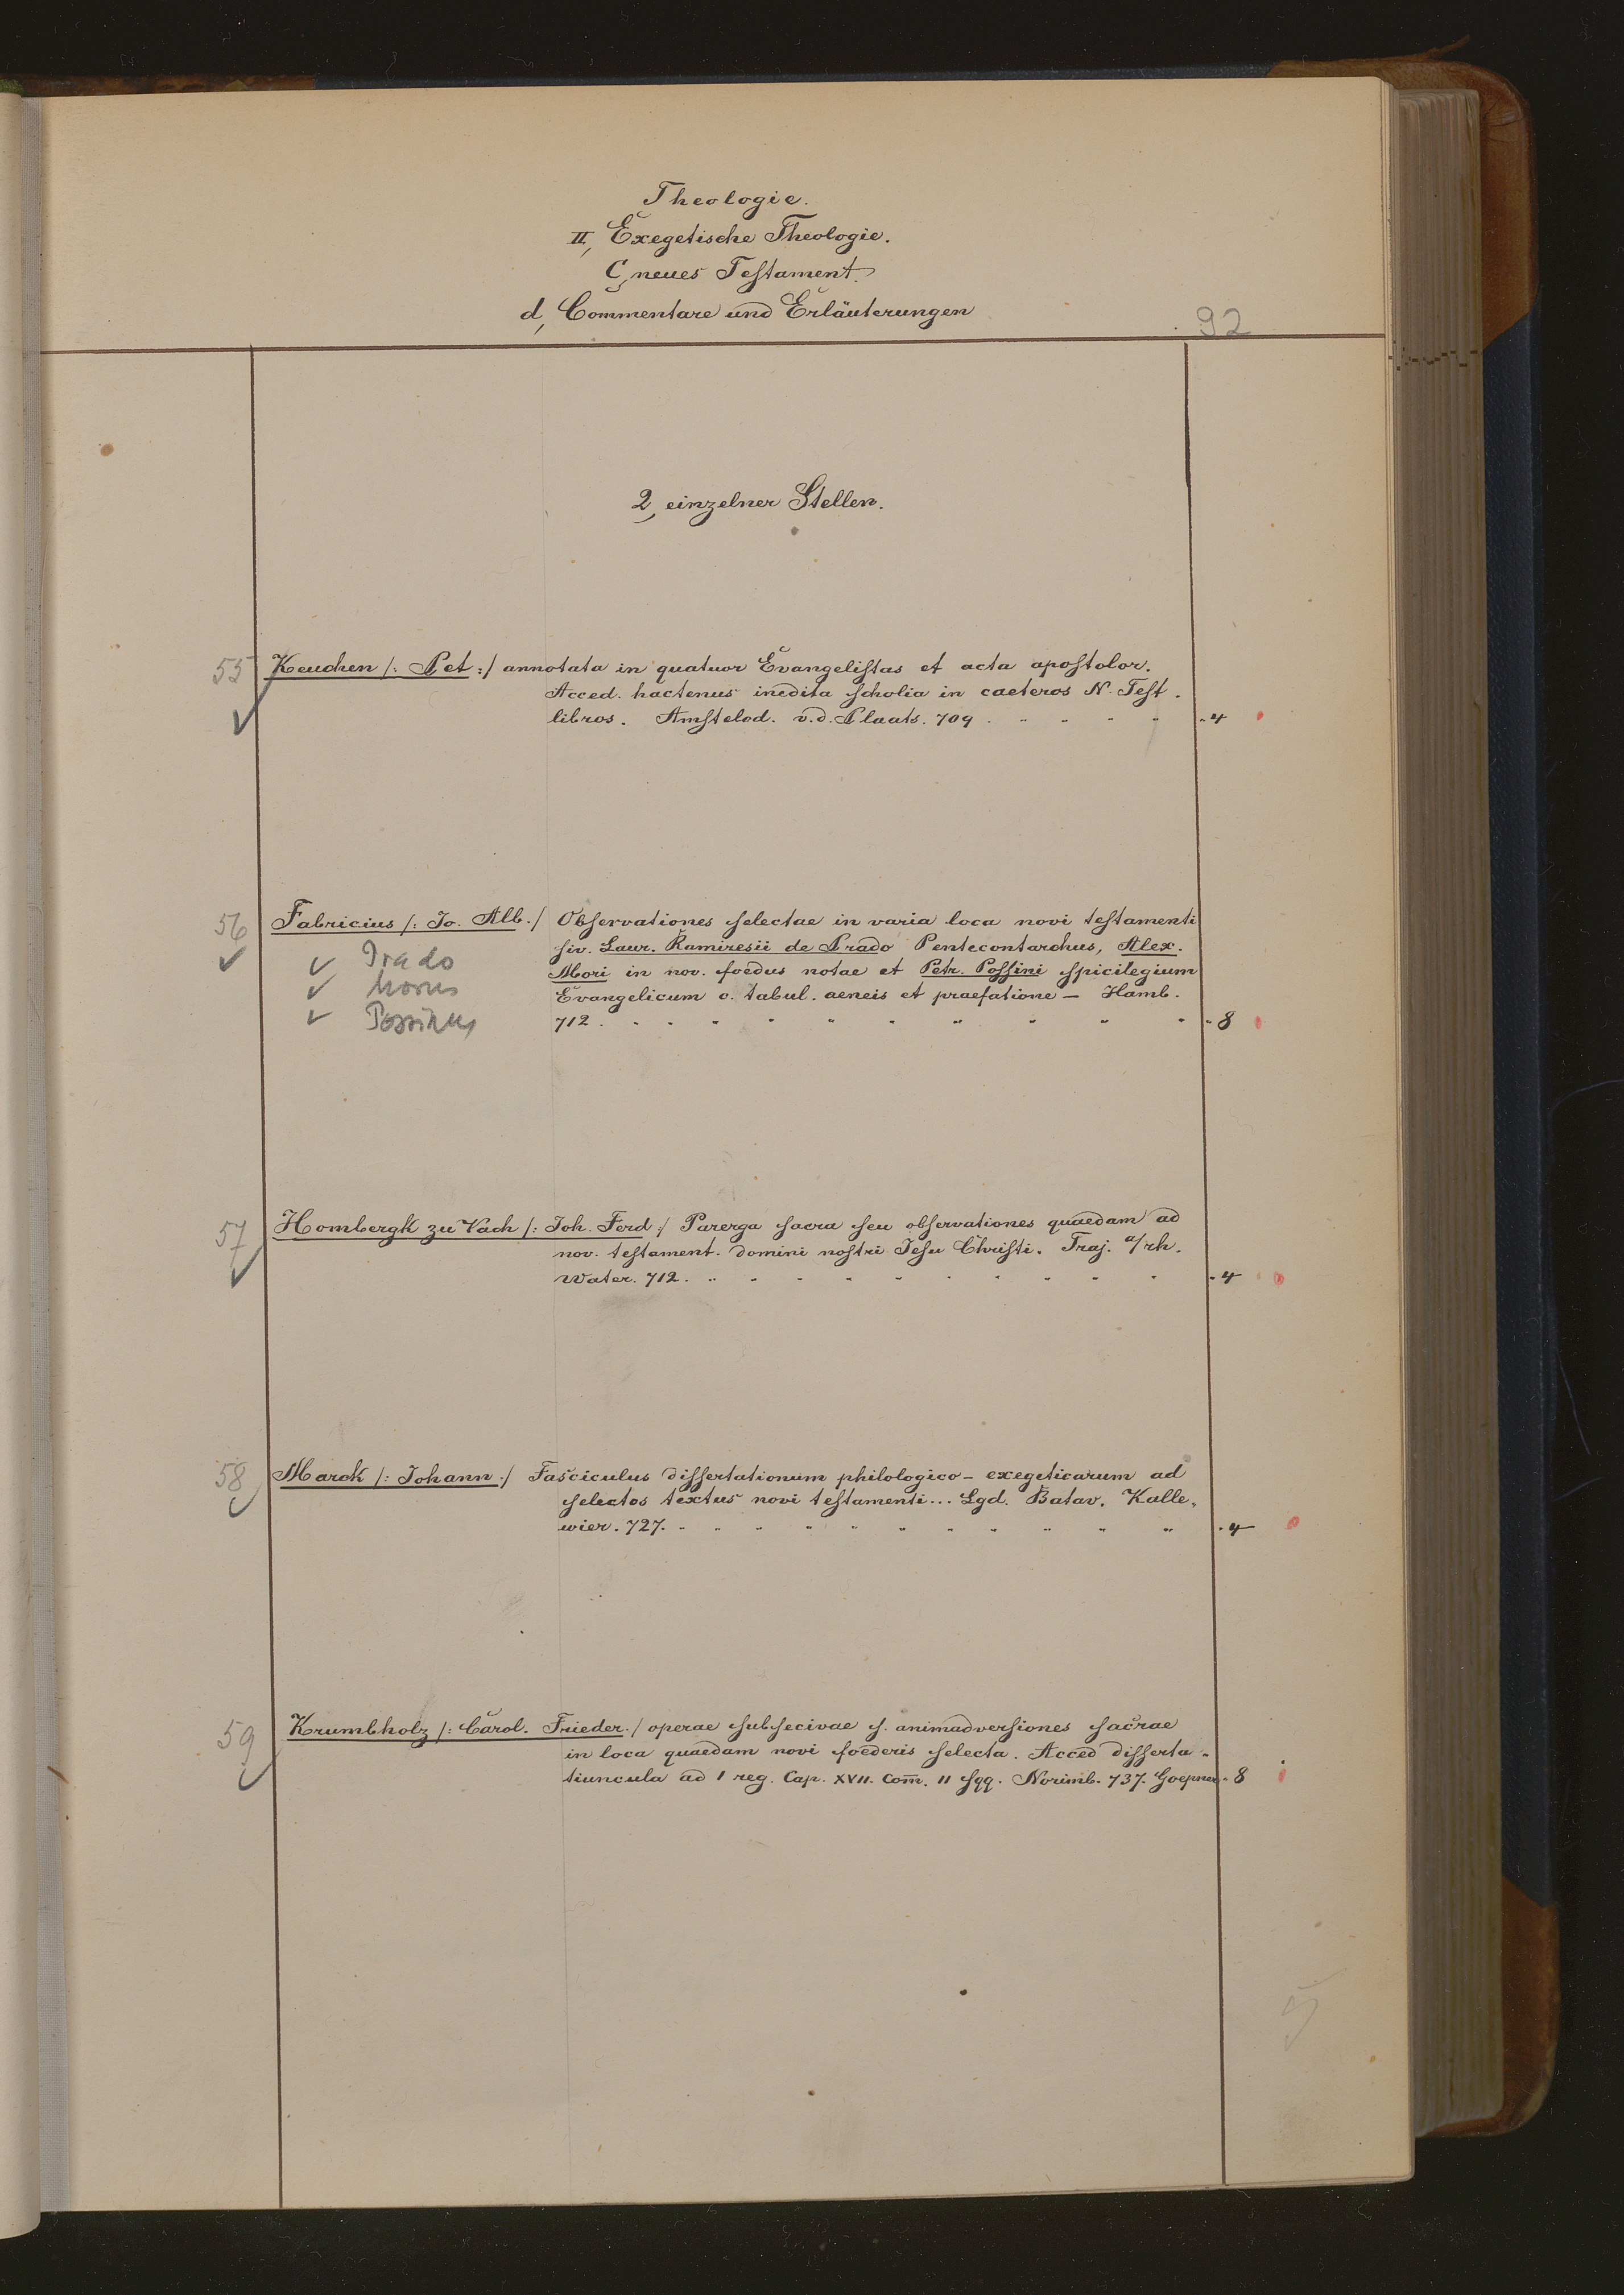 Theologie.
II, Exegetische Theologie.
C, neues Testament.
d, Commentare und Erläuterungen
92
2, einzelner Stellen.
55 Keuchen /: Pet :/ annotata in quatuor Evangelistas et acta apostolor.
Acced. hactenus inedita scholia in caeteros N. Test.
libros. Amstelod. v. d. Plaats. 709 . . . . . 4
56 Fabricius /: Jo. Alb. / Observationes selectae in varia loca novi testamenti
Prado siv. Laur. Ramiresii de Prado Pentecontarchus, Alex.
Morus Mori in nov. foedus notae et Petr. Possini spicilegium
Evangelicum c. tabul. aeneis et praefatione — Hamb.
Possinus 712 . . . . . . . . . . . 8
57 Hombergk zu Vach /: Joh. Ferd :/ Parerga sacra seu observationes quaedam ad
nov. testament. domini nostri Jesu Christi. Traj. a/rh.
Water. 712. . . . . . . . . . . 4
58 Marck /: Johann :/ Fasciculus dissertationum philologico - exegeticarum ad
selectos textus novi testamenti... Lgd. Batav. Kalle-
wier. 727. . . . . . . . . . . . 4
59 Krumbholz /: Carol. Frieder. / operae subsecivae s. animadversiones sacrae
in loca quaedam novi foederis selecta. Acced disserta-
tiuncula ad 1 reg. Cap. XVII. Com. 11 sqq. Norimb. 737. Goepner. 8